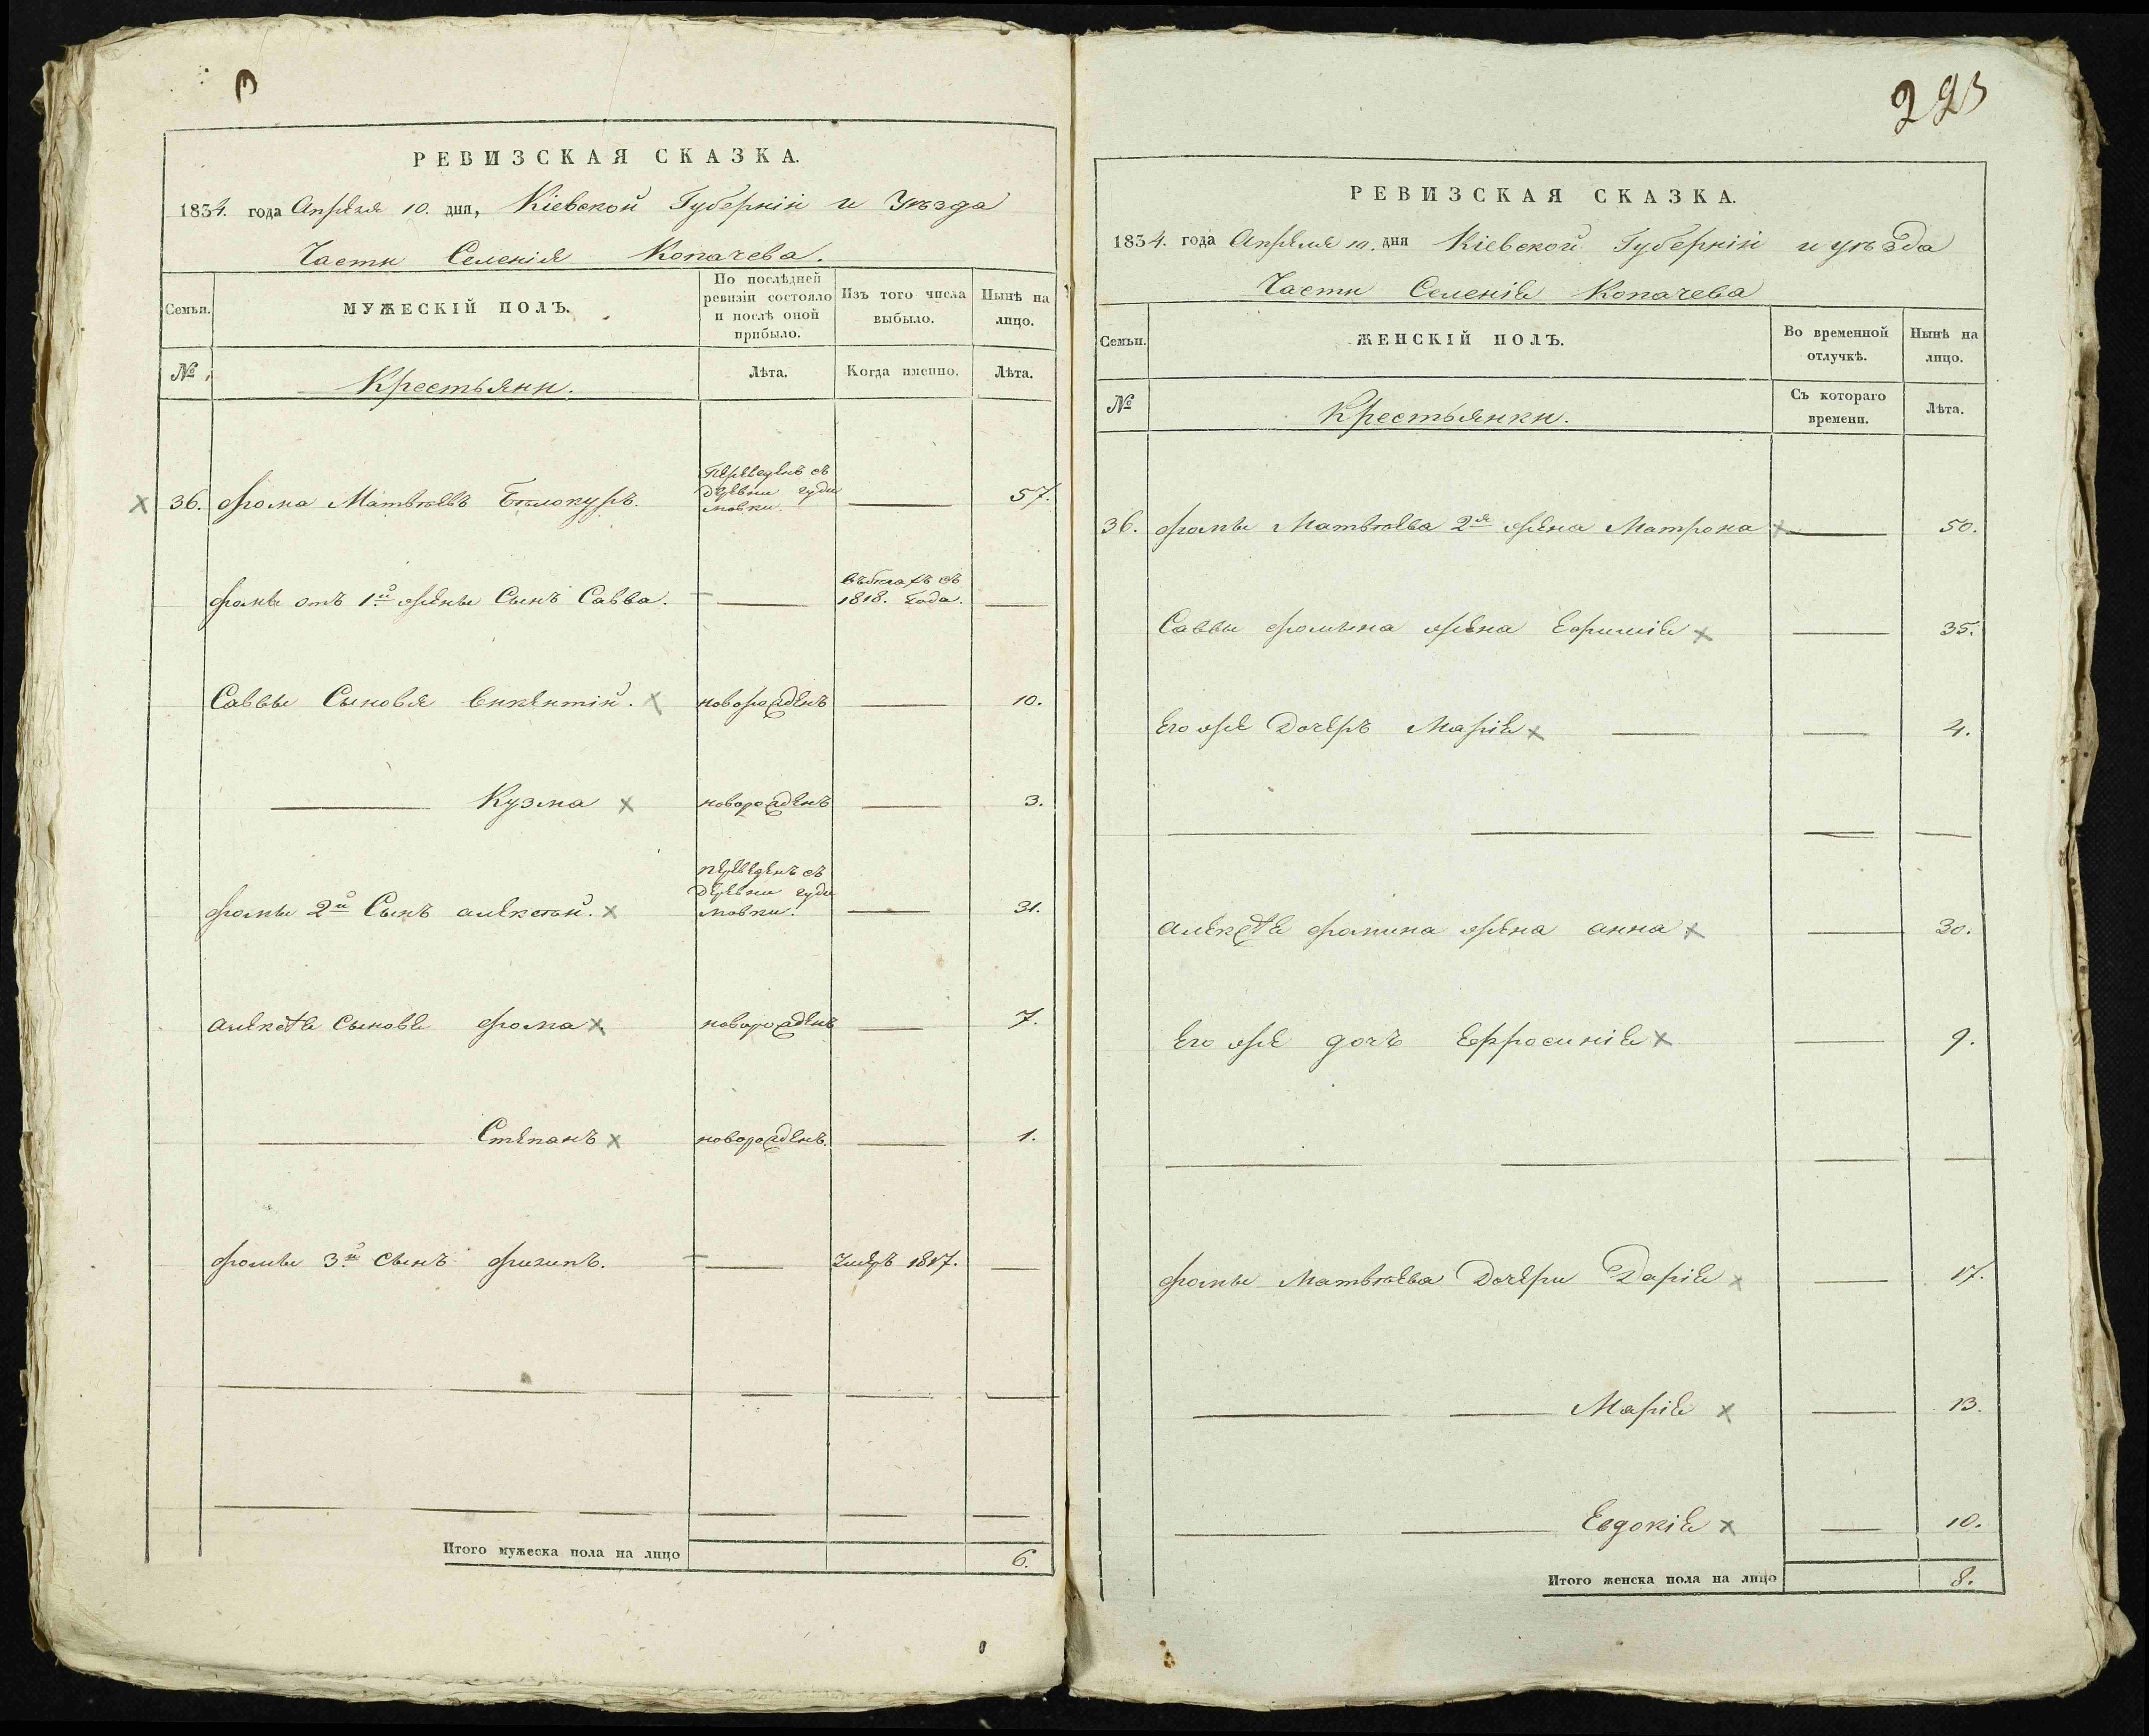 РЕВИЗСКАЯ СКАЗКА.
1834. года Апреля 10. дня, Кіевской Губерніи и Уѣзда
Части Селенія Копачева.
Семьи.
МУЖЕСКІЙ ПОЛЪ.
По послѣдней
ревизіи состояло
и послѣ оной
прибыло.
Изъ того числа
выбыло.
Нынѣ на
лицо.
№
Крестьяни.
Лѣта.
Когда именно.
Лѣта.
Переведенъ съ
деревни гуди
мовки.
36. фома Матвѣевъ Бѣлокуръ. 57.
въ бегахъ съ
фомы отъ 1й жены Сынъ Савва. 1818. Года.
Саввы Сыновя Викентій. новорожденъ 10.
Кузма новорожденъ 3.
переведенъ съ
деревни гуди
фомы 2й Сынъ алексѣй. мовки. 31.
алексѣя сыновя фома новорожденъ 7.
Степанъ новорожденъ. 1.
фомы 3й сынъ филипъ. Умеръ 1817.
Итого мужеска пола на лицо 6.
223
РЕВИЗСКАЯ СКАЗКА.
1834. года Апреля 10. дня Кіевской Губерніи и уѣзда
Части Селенія Копачева
Семьи.
ЖЕНСКІЙ ПОЛЪ.
Во временной
отлучкѣ.
Нынѣ на
лицо.
№
Крестьянки.
Съ котораго
времени.
Лѣта.
36. фомы Матвѣева 2я жена Матрона 50.
Саввы фомина жена Ефимія 35.
его же Дочеръ Марія 4.
алексѣя фомина жена анна 30.
его же дочъ Ефросинія 9.
фомы Матвѣева Дочери Дарія 17.
Марія 13.
Евдокія 10.
Итого женска пола на лицо 8.